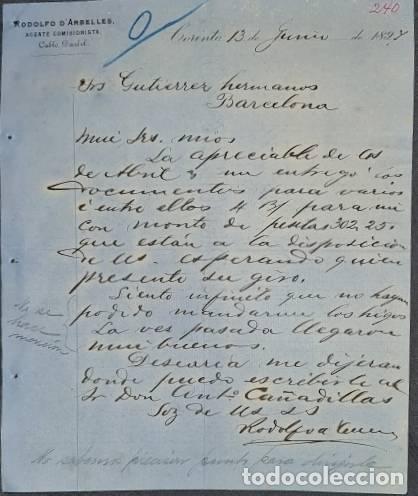 240
RODOLFO D'ARBELLES,
AGENTE COMISIONISTA
Corinto 13 de Junio de 1897
Srs Gutierrez hermanos
Barcelona
Mui Srs. mios
La apreciable de Us
de Abril me entregó los
documentos para varios
i entre ellos 4 B/ para mi
con monto de pesetas 302.25
que están a la disposicion
de Us. esperando quien
presente su giro.
Siento infinito que no hayan
podido mandarme los higos
La ves pasada llegaron
mui buenos.
Desearia me dijeran
donde puedo escribirle al
Sr Don Anto. Cañadillas
Soy de Us SS
No se
hace
mencion
No sabemos precisar punto para dirigirle
todocoleccion.net